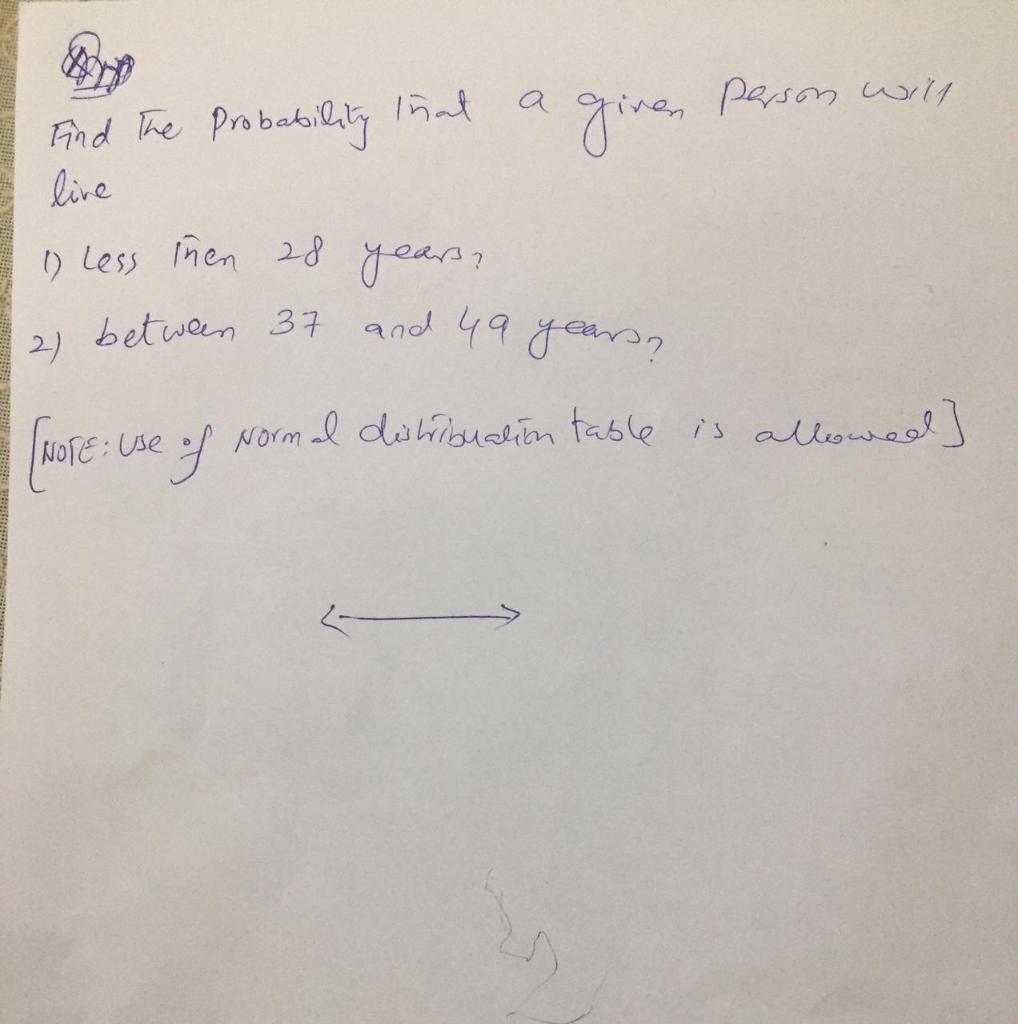 Find The Probability that a given Person will
live
1) Less then 28 years?
2) between 37 and 49 years?
[NOTE: Use of Normal distribution table is allowed]